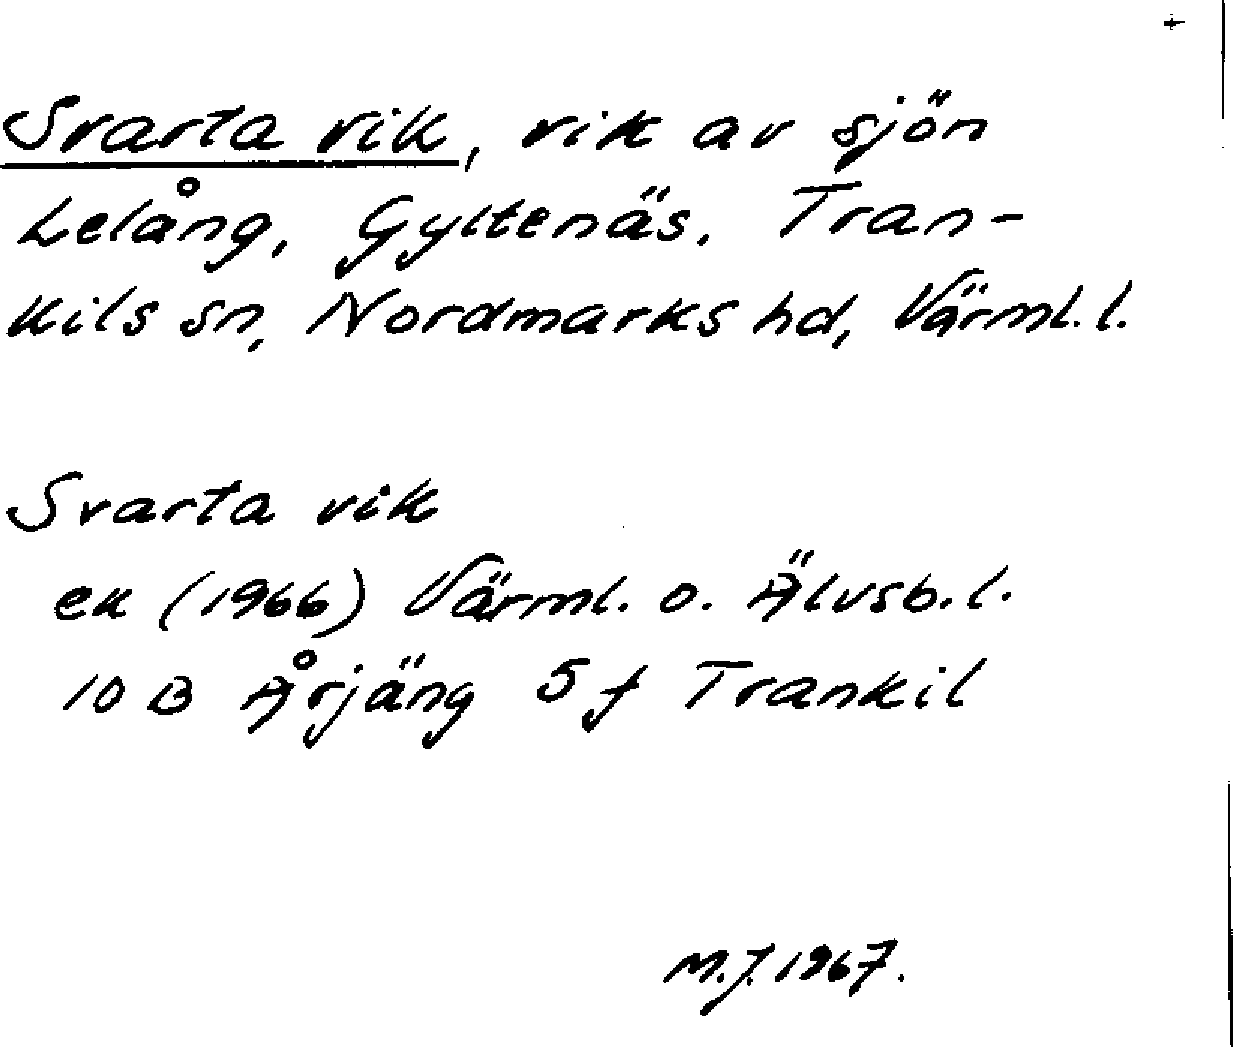 +
Svarta vik, vik av sjön
Lelång, Gyltenäs, Tran-
kils sn, Nordmarks hd, Värml. l.
Svarta vik
ek (1966) Värml. o. Älvsb. l.
10 B Årjäng 5 f Trankil
M.J. 1967.